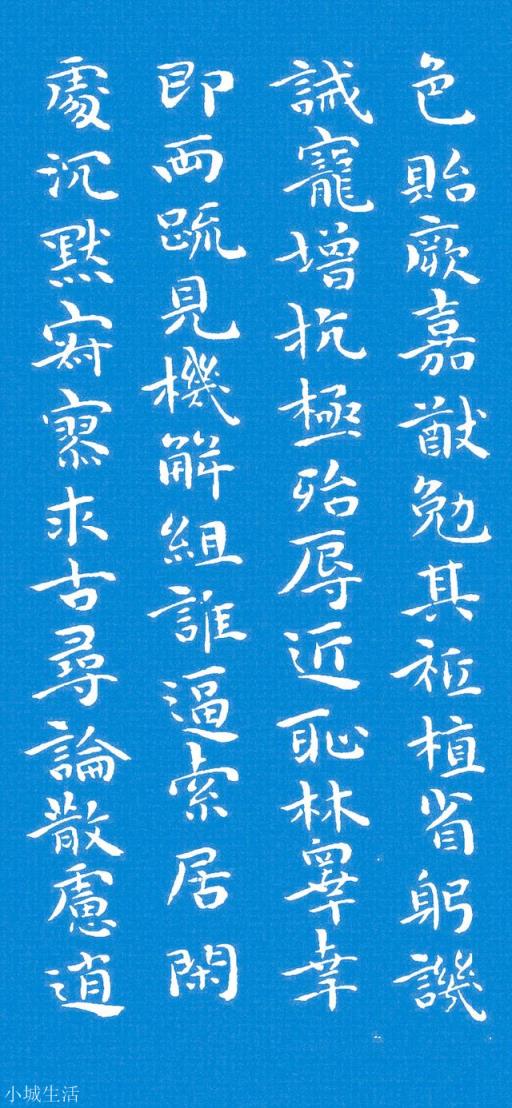 色貽厥嘉猷勉其祗植省躬譏
誡寵增抗極殆辱近恥林睾幸
即两疏見機解組誰逼索居閑
處沉默寂寥求古尋論散慮逍
小城生活